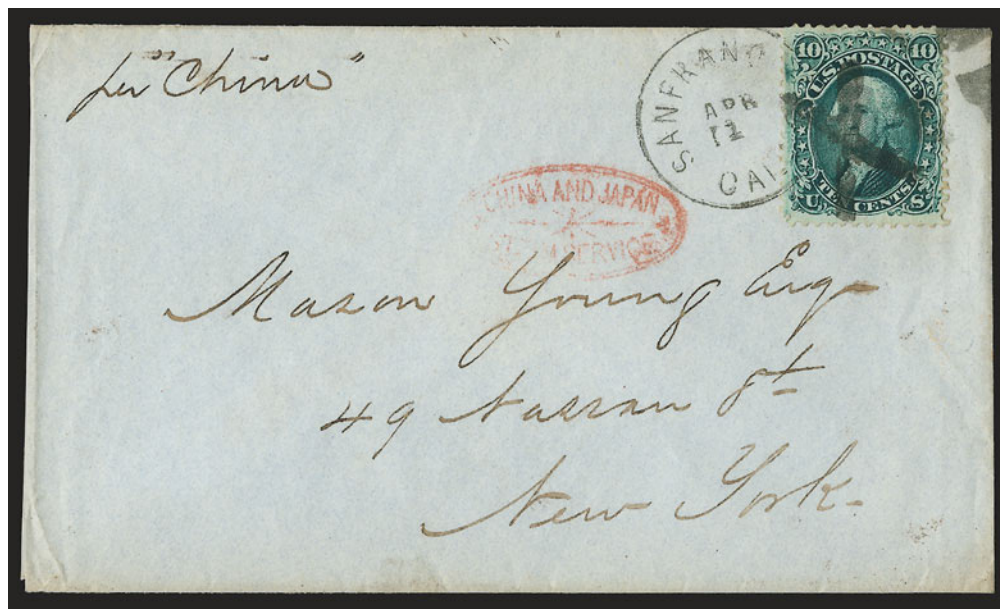 per "China"
SAN FRAN
APR
11
CAL
10 10
U.S. POSTAGE
TEN CENTS.
U S
CHINA AND JAPAN
SERVICE
Mason Young Esq
49 Nassau St
New York.